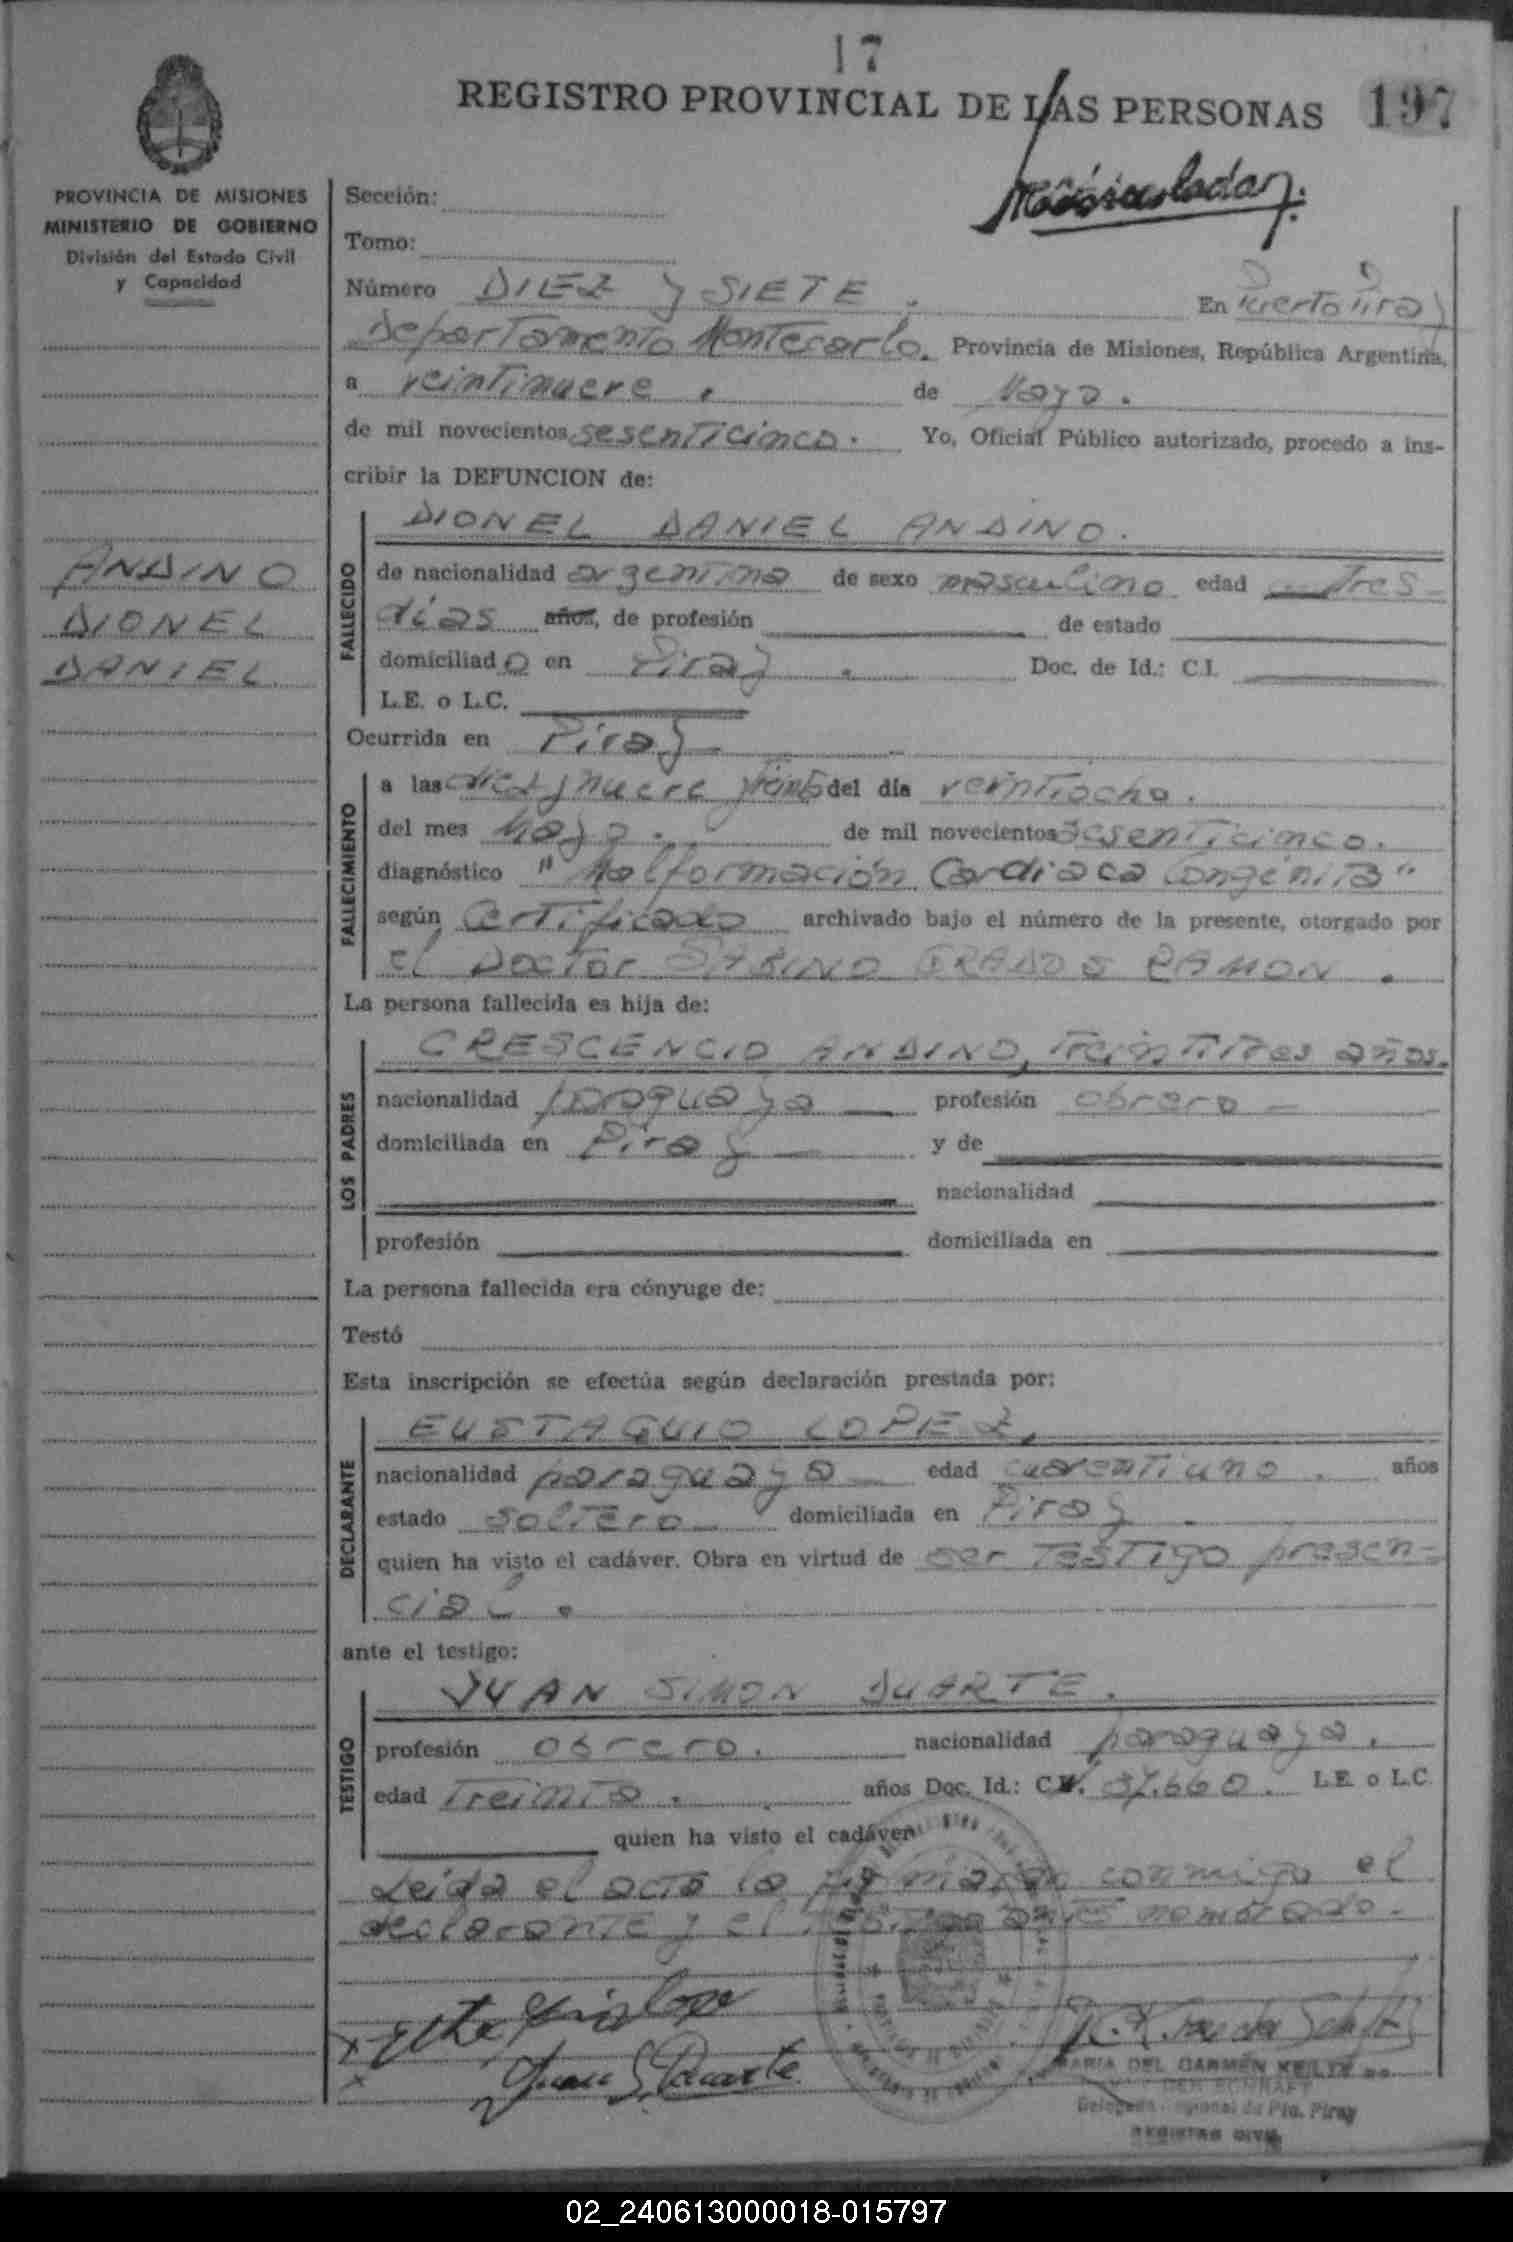 17
REGISTRO PROVINCIAL DE LAS PERSONAS 197
PROVINCIA DE MISIONES
MINISTERIO DE GOBIERNO
División del Estado Civil
y Capacidad
ANDINO
DIONEL
DANIEL
Sección:
Tomo:
Número DIEZ y SIETE. En Puerto Piray
Departamento Montecarlo. Provincia de Misiones, República Argentina,
a veintinueve. de Mayo.
de mil novecientos sesenticinco. Yo, Oficial Público autorizado, procedo a ins-
cribir la DEFUNCION de:
FALLECIDO
DIONEL DANIEL ANDINO.
de nacionalidad argentina de sexo masculino edad tres
días años, de profesión de estado
domiciliado en Piray. Doc. de Id.: C.I.
L.E. o L.C.
Ocurrida en Piray
FALLECIMIENTO
a las diez y nueve y del día veintiocho.
del mes Mayo. de mil novecientos sesenticinco.
diagnóstico "Malformación Cardiaca Congénita"
según Certificado archivado bajo el número de la presente, otorgado por
el Doctor SABINO RAMON.
La persona fallecida es hija de:
LOS PADRES
CRESCENCIO ANDINO, treintitres años.
nacionalidad paraguaya profesión obrero
domiciliada en Piray y de
nacionalidad
profesión domiciliada en
La persona fallecida era cónyuge de:
Testó
Esta inscripción se efectúa según declaración prestada por:
DECLARANTE
EUSTAQUIO LOPEZ,
nacionalidad paraguaya edad cuarentiuno. años
estado soltero domiciliada en Piray.
quien ha visto el cadáver. Obra en virtud de ser testigo presen-
cial.
ante el testigo:
TESTIGO
JUAN SIMON DUARTE.
profesión obrero. nacionalidad paraguaya.
edad Treinta. años Doc. Id.: C.I. 37.660. L.E. o L.C.
quien ha visto el cadáver
Leida el acta la firmaran conmigo el
declarante y el testigo antes nombrado.
Juan S. Duarte
MARIA DEL CARMEN
Pto. Piray
REGISTRO CIVIL
02_240613000018-015797